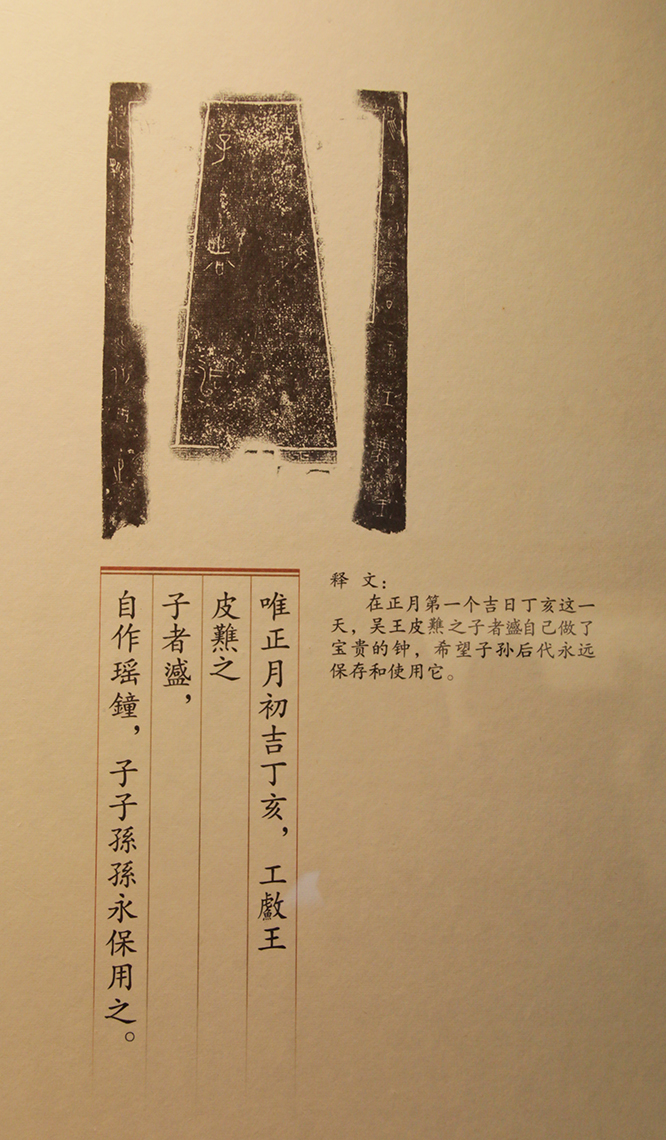 唯正月初吉丁亥，工王
皮之
子者，
自作瑶鐘，子子孫孫永保用之。
释 文：
在正月第一个吉日丁亥这一
天，吴王皮之子者自己做了
宝贵的钟，希望子孙后代永远
保存和使用它。